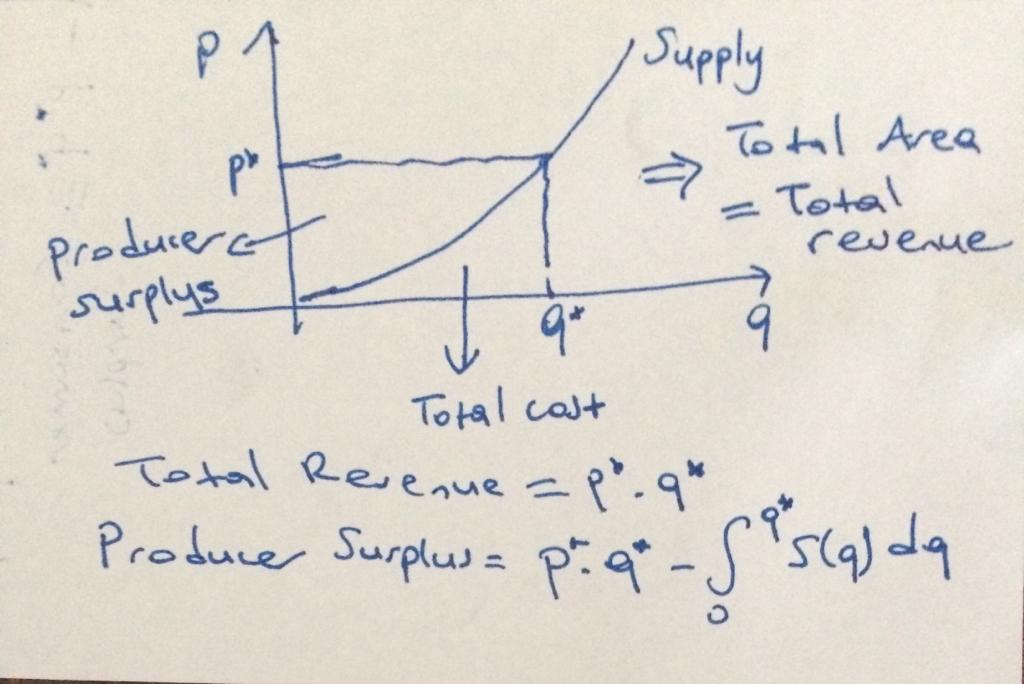 p
Supply
p*
⇒ Total Area
= Total
revenue
producer
surplys
q*
q
Total cost
Total Revenue = p* . q*
Producer Surplus = p* . q* - ∫₀^q* S(q) dq